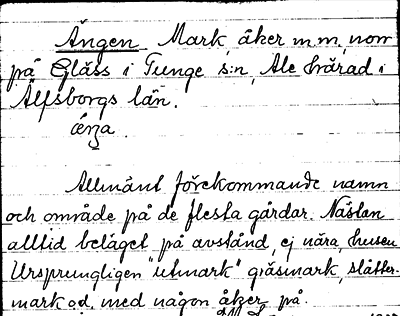 Ängen Mark, åker m.m, norr
på Gläss i Tunge s:n, Ale härad i
Älfsborgs län.
ænza.
Allmänt förekommande namn
och område på de flesta gårdar. Nästan
alltid beläget på avstånd, ej nära, husen
Ursprungligen "utmark" gräsmark, slåtter-
mark o.d. med någon åker på.